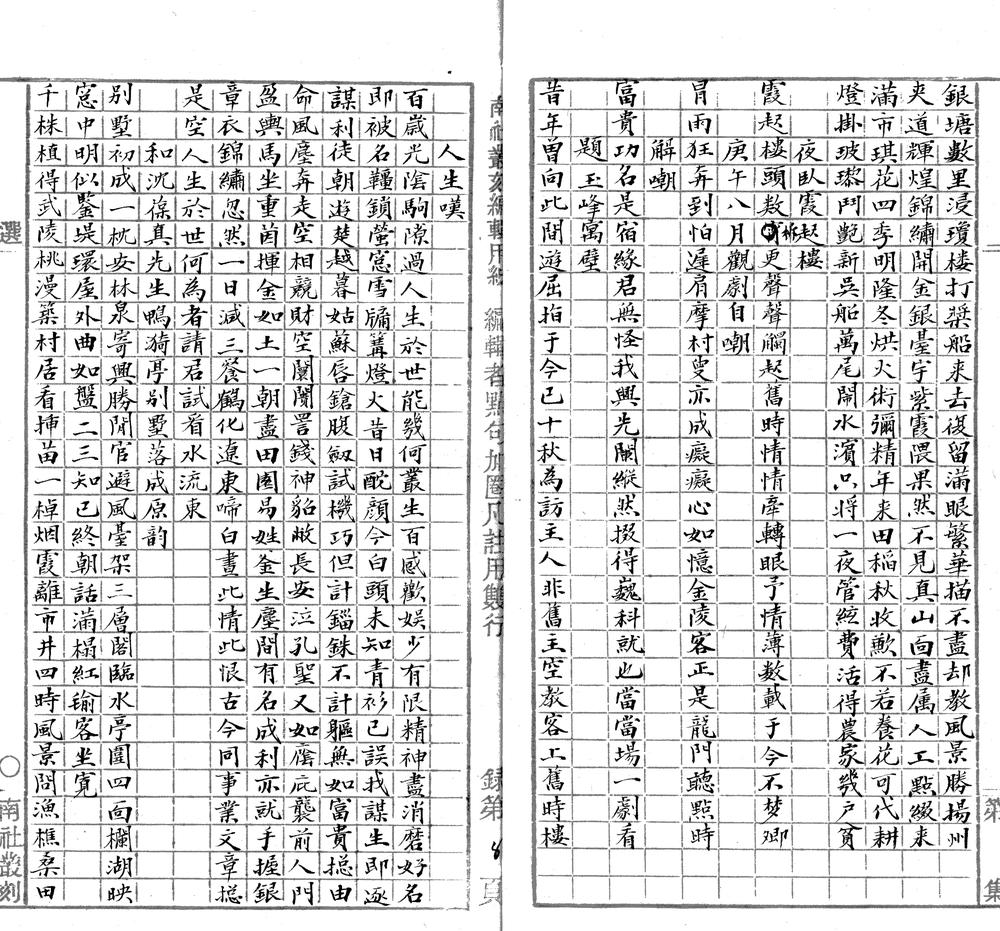 銀塘數里浸瓊楼打槳船来去復留滿眼繁華描不盡却教風景勝揚州
夾道輝煌錦繡開金銀臺宇紫霞隈果然不見真山面盡属人工點綴来
滿市琪花四季明隆冬烘火術彌精年来田稻秋收歉不若養花可代耕
燈掛玻瓈鬥艷新吳船萬尾閙水濱只將一夜管絃費活得農家幾户貧
夜臥霞起樓
霞起樓頭敖柝更聲聲觸起舊時情情牽轉眼予情薄數載于今不梦卿
庚午八月觀劇自嘲
冐雨狂奔到怕遲肩摩村叟亦成癡癡心如憶金陵客正是龍門聽點時
解嘲
富貴功名是宿緣君無怪我興光闌縱然掇得巍科就也當當場一劇看
題玉峰寓壁
昔年曾向此間遊屈指于今已十秋為訪主人非舊主空教客上舊時樓
南社叢刻編輯用紙
編輯者點句加圈凡註用雙行
錄第8頁
第集
人生嘆
百歲光陰駒隙過人生於世能幾何叢生百感歡娱少有限精神盡消磨好名
即被名韁鎖螢窓雪牖篝燈火昔日酡顔今白頭未知青衫已誤我謀生即逐
謀利徒朝遊楚越暮姑蘇唇鎗腹劔試機巧但計錙銖不計軀無如富貴摠由
命風塵奔走空相競財空闤闠詈錢神貂敝長安泣孔聖又如廕庇襲前人門
盈輿馬坐重茵揮金如土一朝盡田園易姓釜生塵間有名成利亦就手握銀
章衣錦繡忽然一日减三餐鶴化遼東啼白晝此情此恨古今同事業文章摠
是空人生於世何為者請君試看水流東
和沈葆真先生鴨漪亭别墅落成原韵
别墅初成一枕安林泉寄興勝閒官避風臺架三層閣臨水亭圍四面欄湖映
窓中明似鑒堤環屋外曲如盤二三知已終朝話滿榻紅输客坐寛
千株植得武陵桃漫築村居看揷苗一棹烟霞離市井四時風景問漁樵桑田
選
南社叢刻